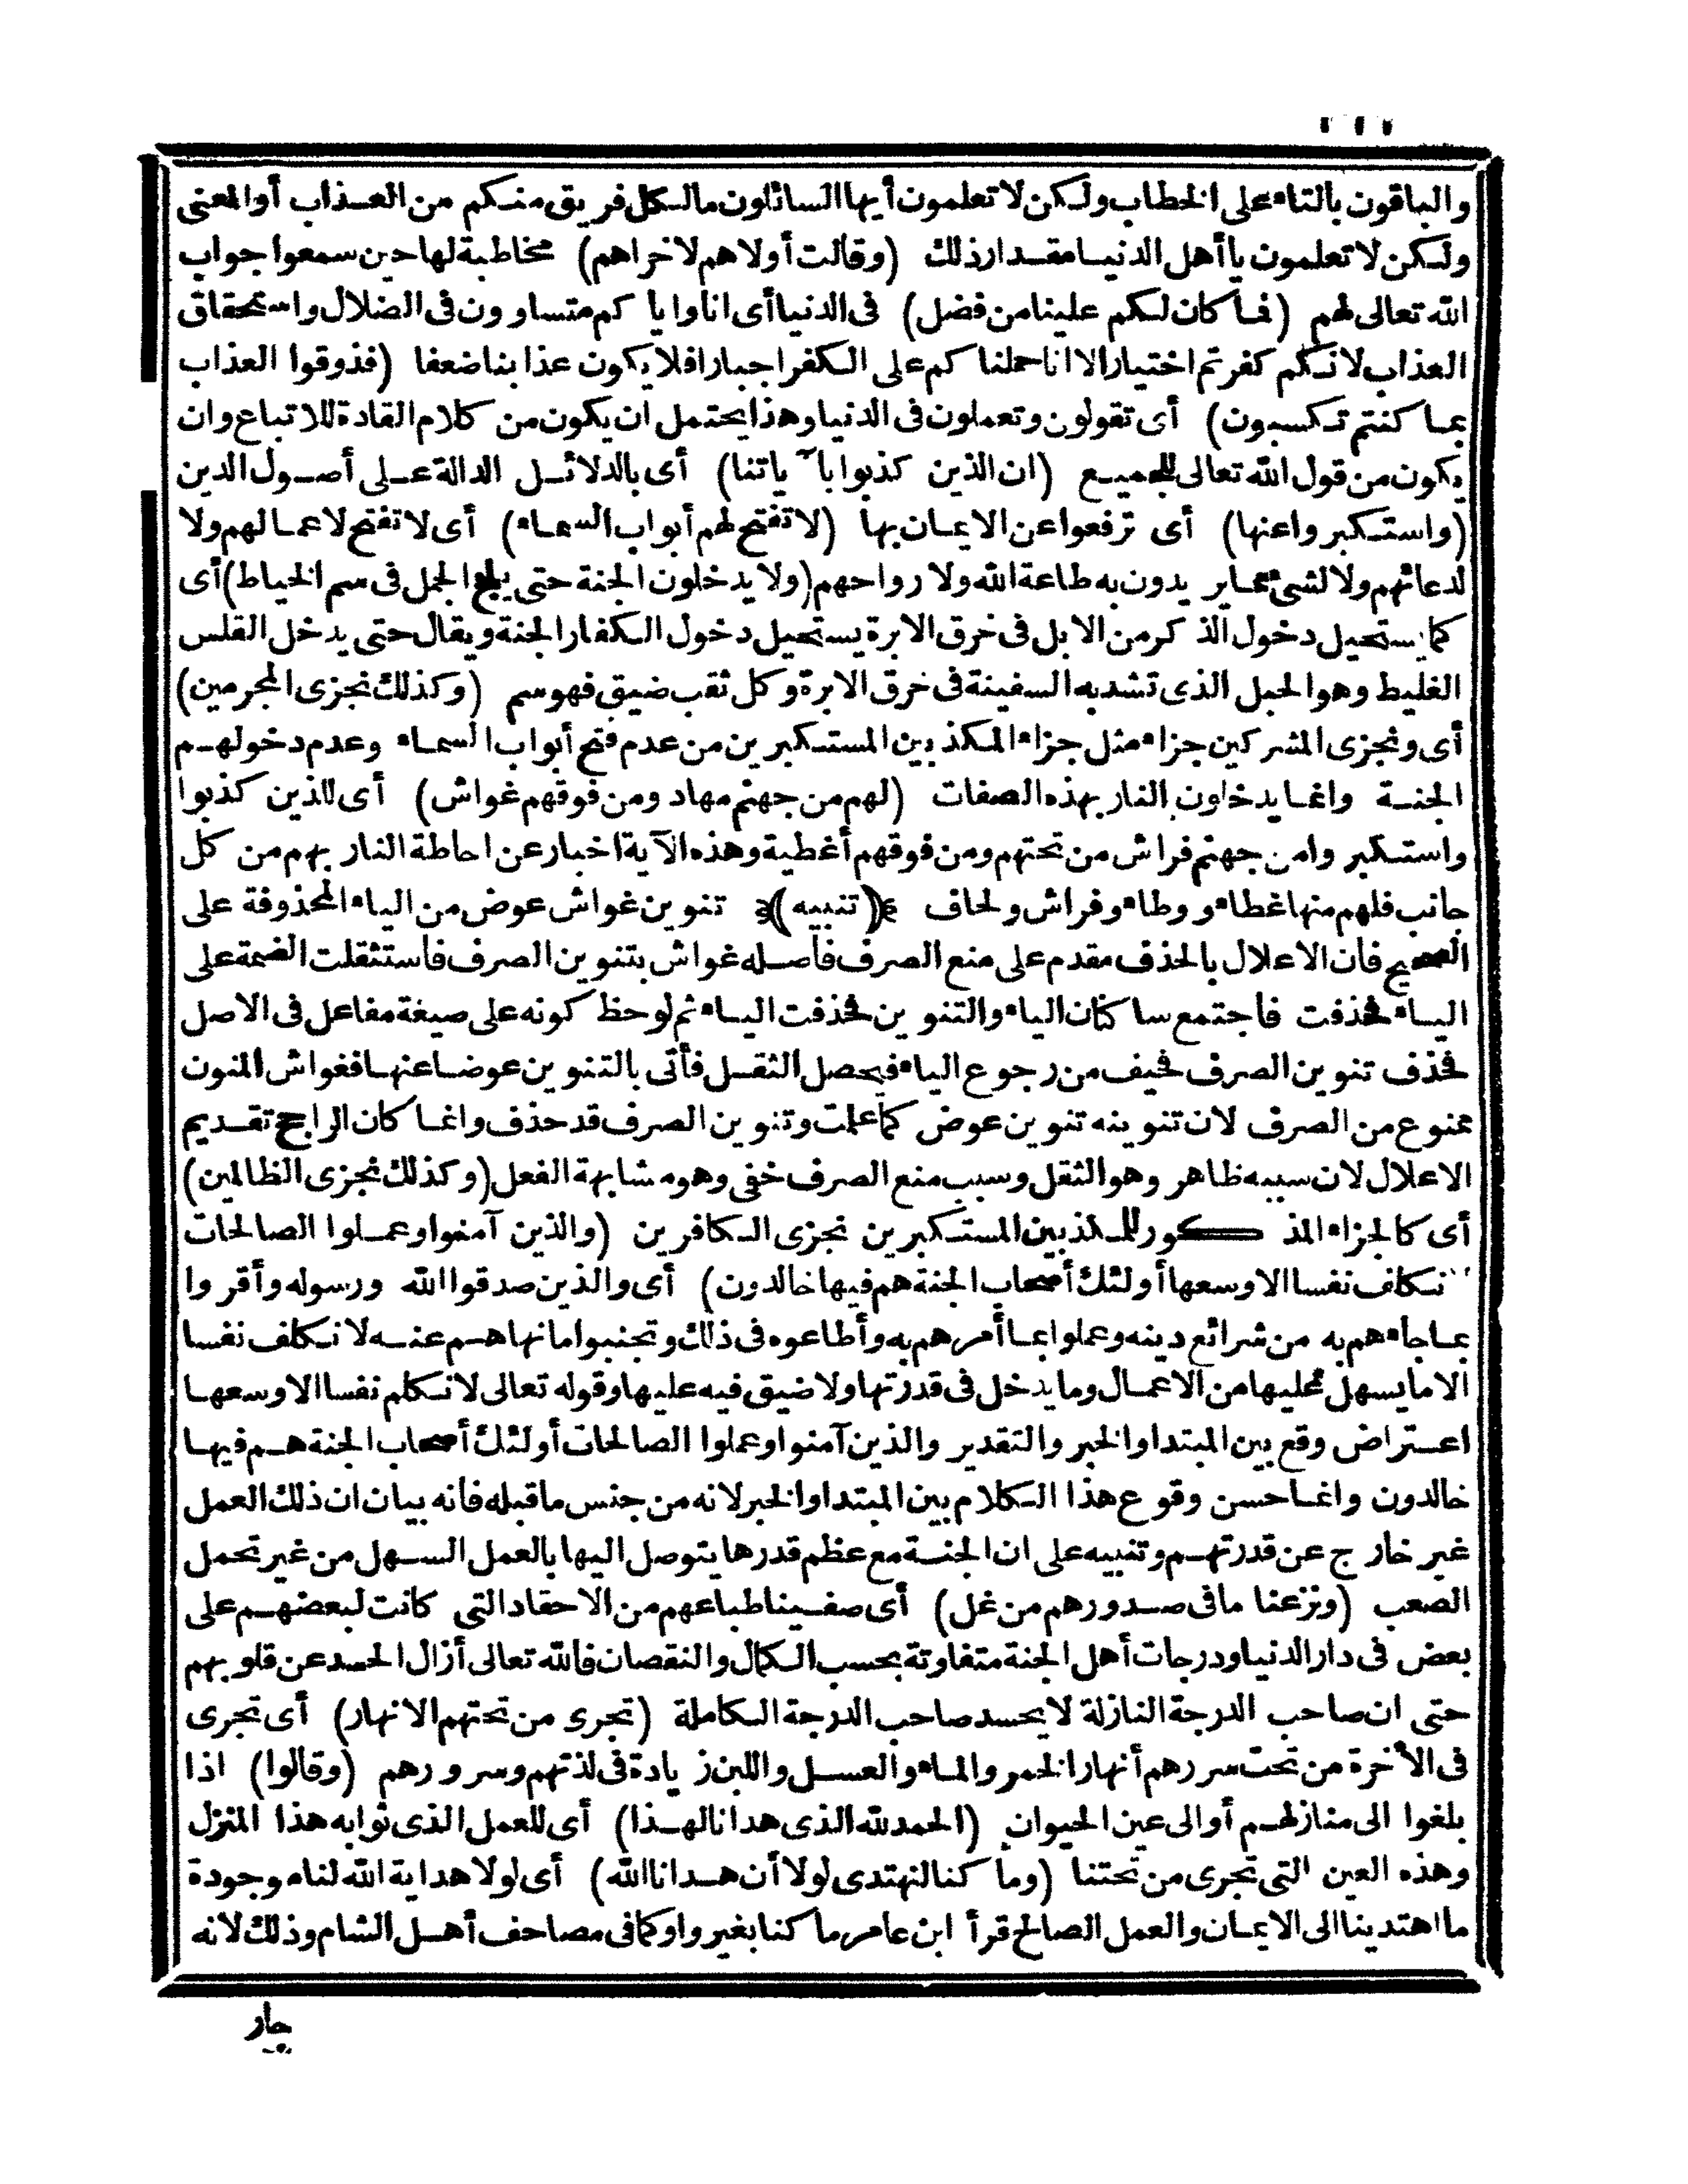 والباقون بالتاء على الخطاب ولكن لا تعلمون أيها السائلون ما لكل فريق منكم من العذاب أو المعنى
ولكن لا تعلمون يا أهل الدنيا مقدار ذلك (وقالت أولاهم لاخراهم) مخاطبة لها حين سمعوا جواب
الله تعالى لهم (فما كان لكم علينا من فضل) فى الدنيا أى انا وايا كم متساوون فى الضلال واستحقاق
العذاب لانكم كفرتم اختيارا لا انا حملنا كم على الكفر اجبارا فلا يكون عذابنا ضعفا (فذوقوا العذاب
بما كنتم تكسبون) أى تقولون وتعملون فى الدنيا وهذا يحتمل ان يكون من كلام القادة للاتباع وان
يكون من قول الله تعالى للجميع (ان الذين كذبوا بآياتنا) أى بالدلائل الدالة على أصول الدين
(واستكبروا عنها) أى ترفعوا عن الايمان بها (لا تفتح لهم أبواب السماء) أى لا تفتح لاعمالهم ولا
لدعائهم ولا لشئ مما يريدون به طاعة الله ولا رواحهم (ولا يدخلون الجنة حتى يلج الجمل فى سم الخياط) أى
كما يستحيل دخول الذكر من الابل فى خرق الابرة يستحيل دخول الكفار الجنة ويقال حتى يدخل القلس
الغليظ وهو الحبل الذى تشد به السفينة فى خرق الابرة وكل ثقب ضيق فهو سم (وكذلك نجزى المجرمين)
أى ونجزى المشركين جزاء مثل جزاء المكذبين المستكبرين من عدم فتح أبواب السماء وعدم دخولهم
الجنة وانما يدخلون النار بهذه الصفات (لهم من جهنم مهاد ومن فوقهم غواش) أى للذين كذبوا
واستكبروا من جهنم فراش من تحتهم ومن فوقهم أغطية وهذه الآية اخبار عن احاطة النار بهم من كل
جانب فلهم منها غطاء ووطاء وفراش ولحاف ﴿تنبيه﴾ تنوين غواش عوض من الياء المحذوفة على
الصحيح فان الاعلال بالحذف مقدم على منع الصرف فأصله غواش بتنوين الصرف فاستثقلت الضمة على
الياء فحذفت فاجتمع ساكنان الياء والتنوين فحذفت الياء ثم لوحظ كونه على صيغة مفاعل فى الاصل
فحذف تنوين الصرف فخيف من رجوع الياء فيحصل الثقل فأتى بالتنوين عوضا عنها فغواش المنون
ممنوع من الصرف لان تنوينه تنوين عوض كما علمت وتنوين الصرف قد حذف وانما كان الراجح تقديم
الاعلال لان سببه ظاهر وهو الثقل وسبب منع الصرف خفى وهو مشابهة الفعل (وكذلك نجزى الظالمين)
أى كالجزاء المذكور للمكذبين المستكبرين نجزى الكافرين (والذين آمنوا وعملوا الصالحات
نكلف نفسا الا وسعها أولئك أصحاب الجنة هم فيها خالدون) أى والذين صدقوا الله ورسوله وأقروا
بما جاءهم به من شرائع دينه وعملوا بما أمرهم به وأطاعوه فى ذلك وتجنبوا ما نهاهم عنه لا نكلف نفسا
الا ما يسهل عليها من الاعمال وما يدخل فى قدرتها ولا ضيق فيه عليها وقوله تعالى لا نكلم نفسا الا وسعها
اعتراض وقع بين المبتدا والخبر والتقدير والذين آمنوا وعملوا الصالحات أولئك أصحاب الجنة هم فيها
خالدون وانما حسن وقوع هذا الكلام بين المبتدا والخبر لانه من جنس ما قبله فانه بيان ان ذلك العمل
غير خارج عن قدرتهم وتنبيه على ان الجنة مع عظم قدرها يتوصل اليها بالعمل السهل من غير تحمل
الصعب (ونزعنا ما فى صدورهم من غل) أى صفينا طباعهم من الاحقاد التى كانت لبعضهم على
بعض فى دار الدنيا ودرجات أهل الجنة متفاوتة بحسب الكمال والنقصان فالله تعالى أزال الحسد عن قلوبهم
حتى ان صاحب الدرجة النازلة لا يحسد صاحب الدرجة الكاملة (تجرى من تحتهم الانهار) أى تجرى
فى الآخرة من تحت سررهم أنهار الخمر والماء والعسل واللبن زيادة فى لذتهم وسرورهم (وقالوا) اذا
بلغوا الى منازلهم أو الى عين الحيوان (الحمد لله الذى هدانا لهذا) أى للعمل الذى ثوابه هذا المنزل
وهذه العين التى تجرى من تحتنا (وما كنا لنهتدى لولا أن هدانا الله) أى لولا هداية الله لنا موجودة
ما اهتدينا الى الايمان والعمل الصالح قرأ ابن عامر ما كنا بغير واو كما فى مصاحف أهل الشام وذلك لانه
جار